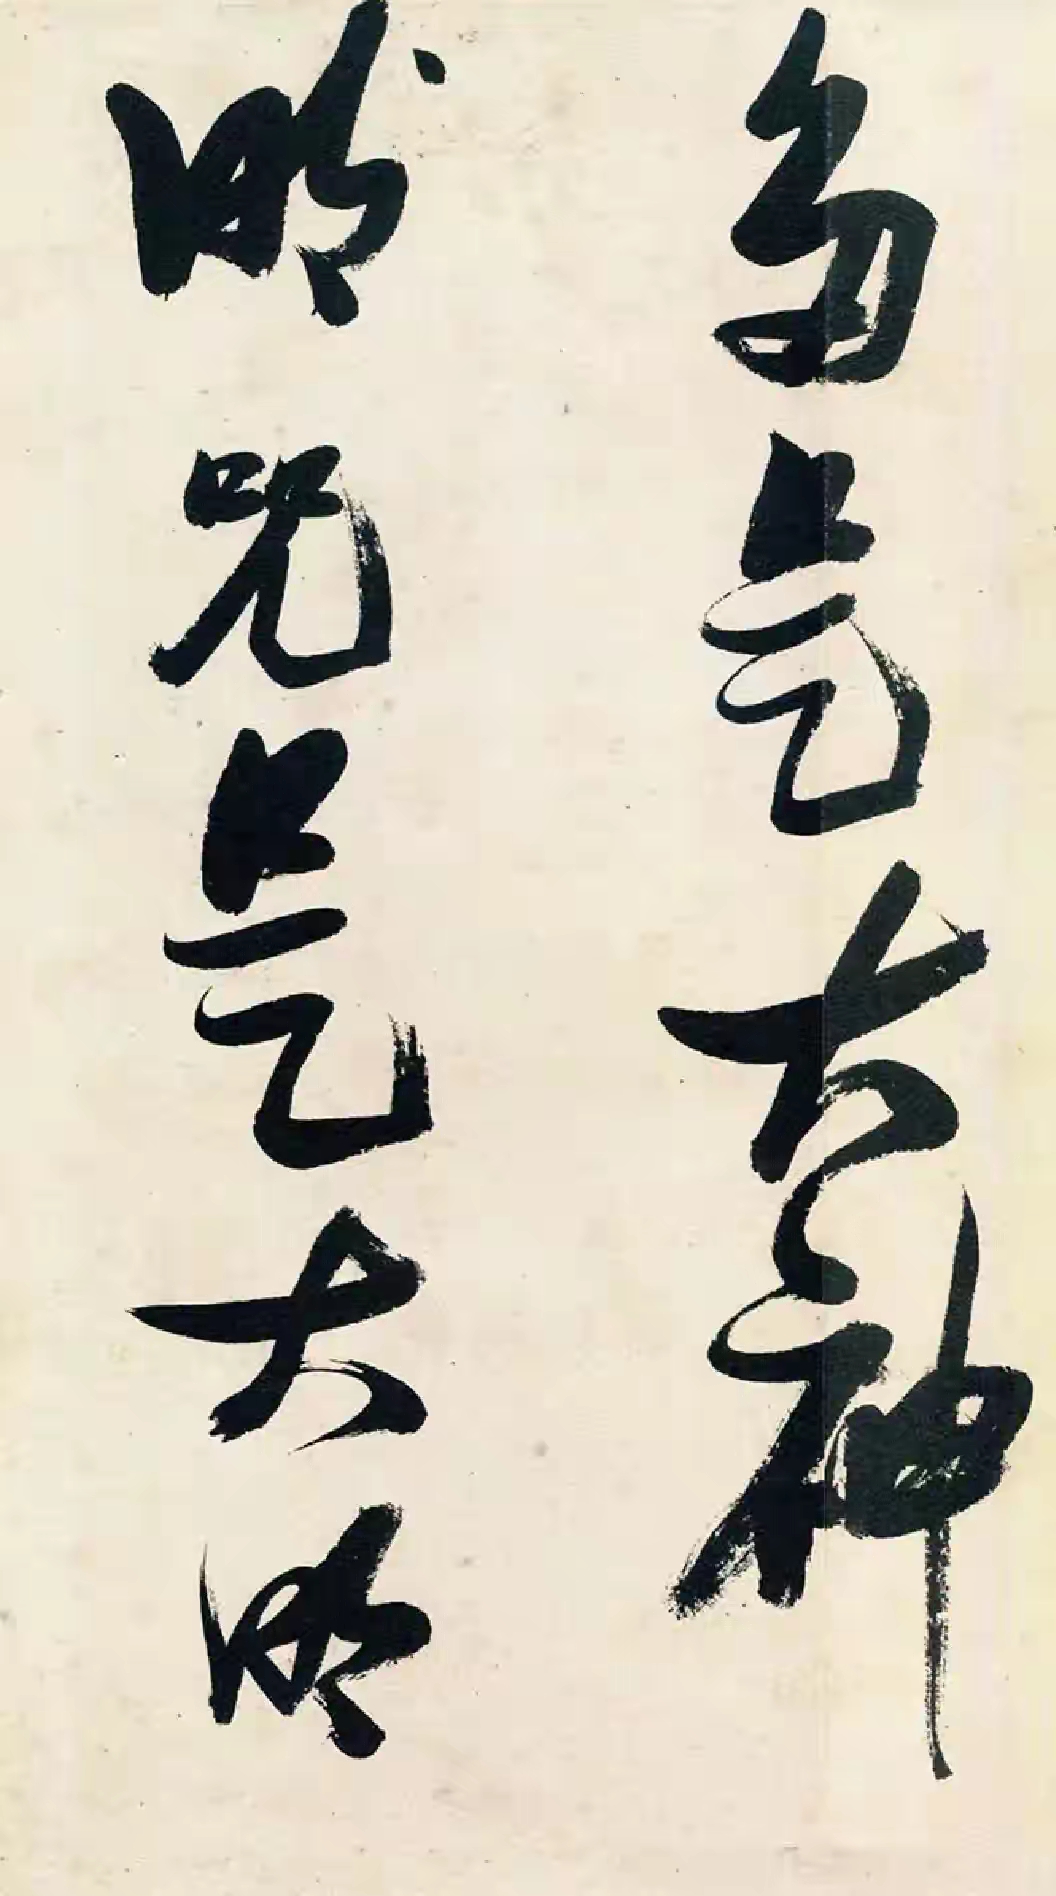 多是大神
明咒是大明